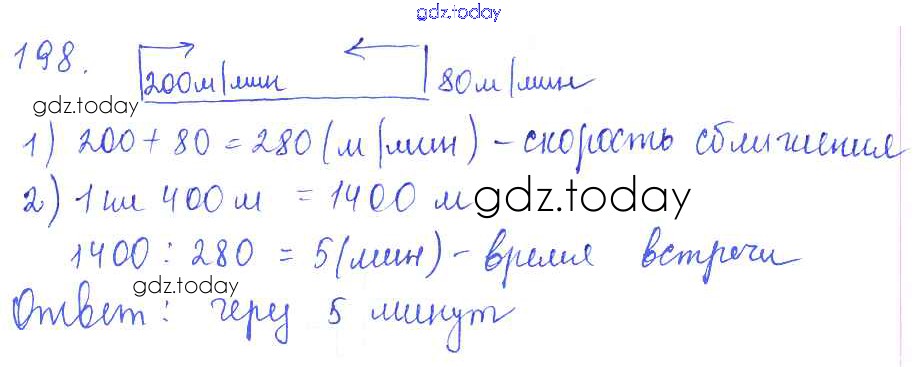 gdz.today
198.
200м/мин 80м/мин
gdz.today
1) 200 + 80 = 280 (м/мин) - скорость сближения
2) 1 км 400 м = 1400 м
gdz.today
1400 : 280 = 5 (мин) - время встречи
gdz.today
Ответ: через 5 минут